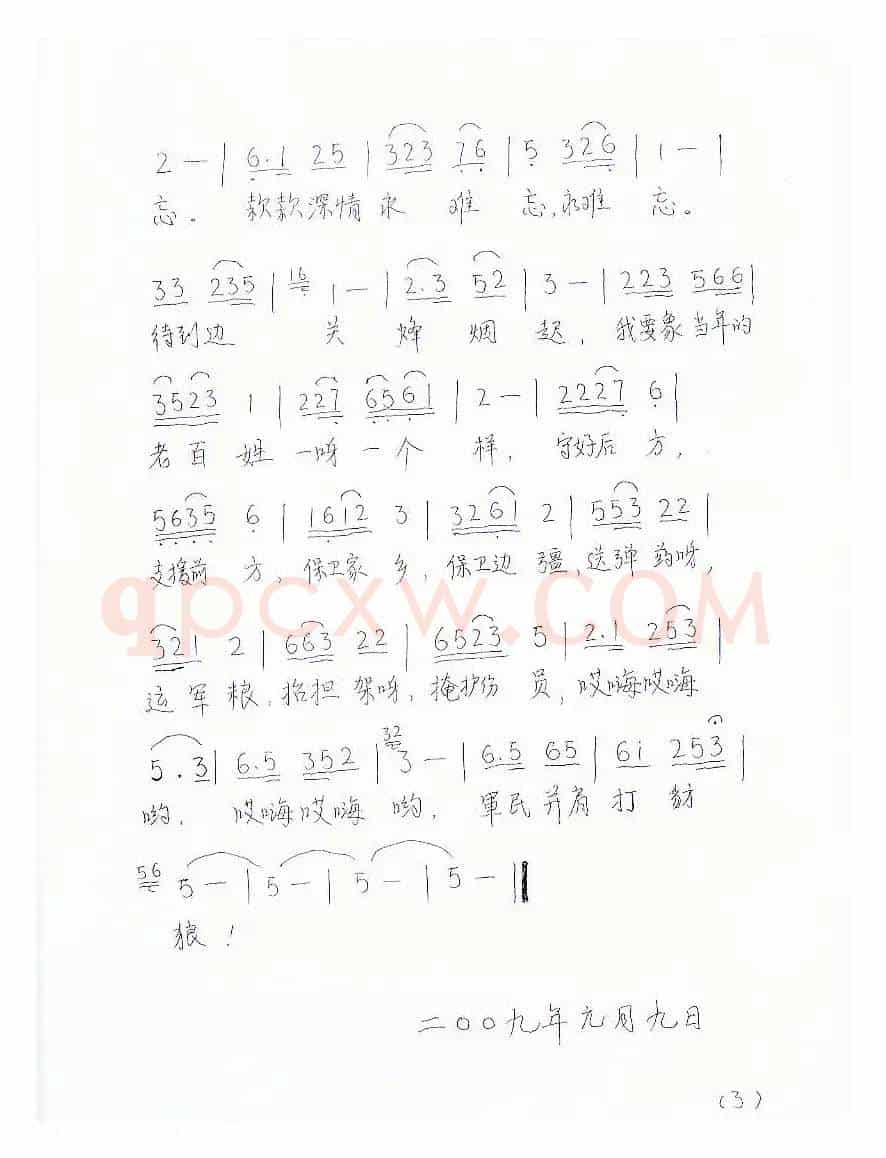 2 — | 6.1 25 | 323 76 | 5 326 | 1 — |
忘。 款款深情永 难 忘,永难 忘。
33 235 | 16 1 — | 2.3 52 | 3 — | 223 566 |
待到边 关 烽 烟 起, 我要象当年的
3523 1 | 227 6561 | 2 — | 2227 6 |
老百 姓 一呀一个 样, 守好后 方,
5635 6 | 1612 3 | 3261 2 | 553 22 |
支援前 方, 保卫家 乡, 保卫边 疆, 送弹 药呀,
321 2 | 663 22 | 6523 5 | 2.1 253 |
运军 粮, 抬担 架呀, 掩护伤 员, 哎嗨哎嗨
5.3 | 6.5 352 | 32 3 — | 6.5 65 | 6i 253 |
哟, 哎嗨哎嗨 哟, 軍民并肩 打 豺
56 5 — | 5 — | 5 — | 5 — ‖
狼!
二〇〇九年元月九日
(3)
qpcxw.COM